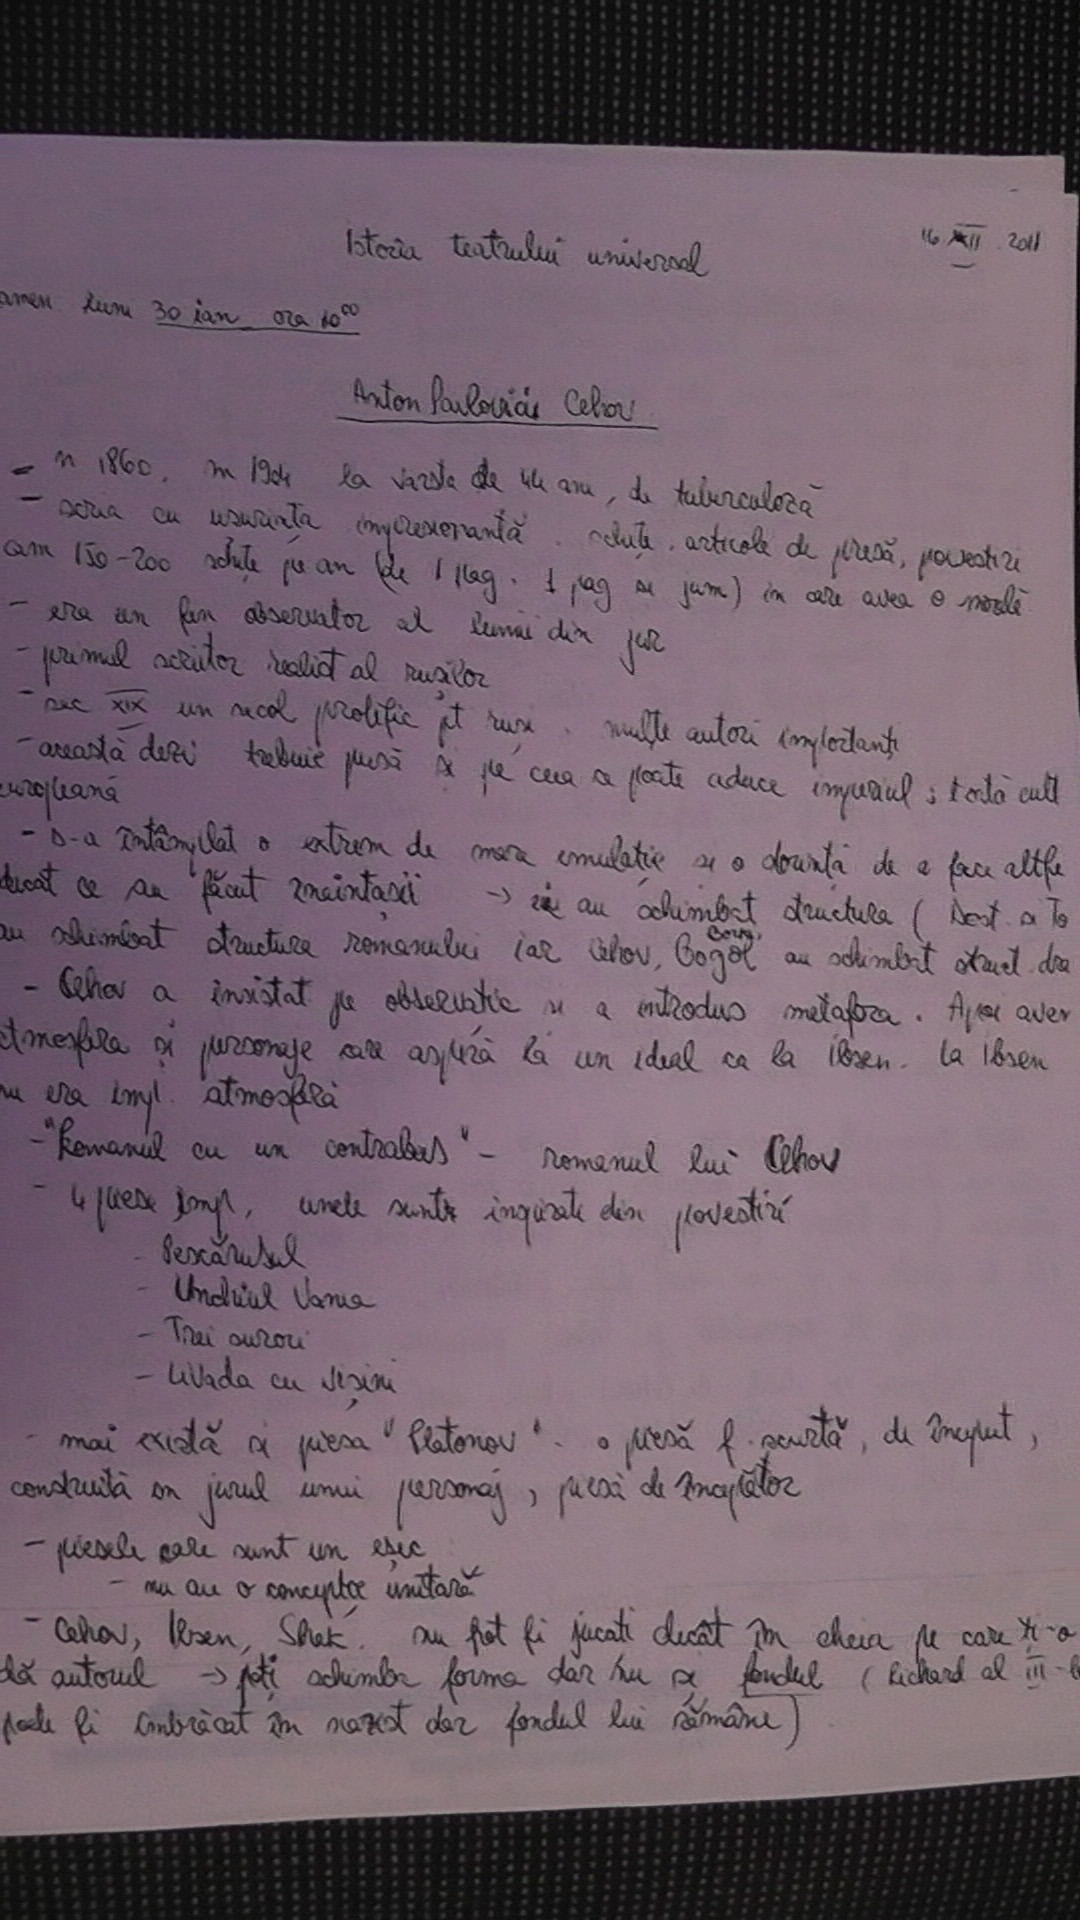 Istoria teatrului universal
16.XII.2011
amen luni 30 ian ora 10⁰⁰
Anton Pavlovici Cehov
- n 1860, m 1904 la varsta de 44 ani, de tuberculoză
- scria cu usurința impresionantă. schițe, articole de presă, povestiri
cam 150-200 schițe pe an (de 1 pag. 1 pag si jum) in care avea o morală
- era un fin observator al lumii din jur
- primul scriitor realist al rușilor
- sec XIX un secol prolific pt ruși. mulțe autori importanți
- această dezv trebuie pusă si pe ceea ce poate aduce imperiul; toată cult
europeană
- s-a întâmplat o extrem de mare emulație si o dorință de a face altfe
decat ce au făcut înaintașii → ei au schimbat structura (Dost. si To
au schimbat structura romanului iar Cehov, Gogol au schimbat struct. dra
- Cehov a insistat pe observatie si a introdus metafora. Apoi aver
atmosfera si personaje care aspiră la un ideal ca la Ibsen. La Ibsen
nu era imp. atmosfera
- "Romanul cu un contrabas" - romanul lui Cehov
- 4 piese imp, unele sunt inspirate din povestiri
- Pescărusul
- Unchiul Vania
- Trei surori
- Livada cu visini
- mai există si piesa "Platonov" - o piesă f. scurtă, de început,
construită in jurul unui personaj, piesă de începător
- piesele care sunt un eșec
- nu au o concepție unitară
- Cehov, Ibsen, Shak. nu pot fi jucati decât în cheia pe care ți-o
dă autorul → poți schimba forma dar nu si fondul (Richard al III-l
poate fi îmbrăcat în nazist dar fondul lui rămâne)